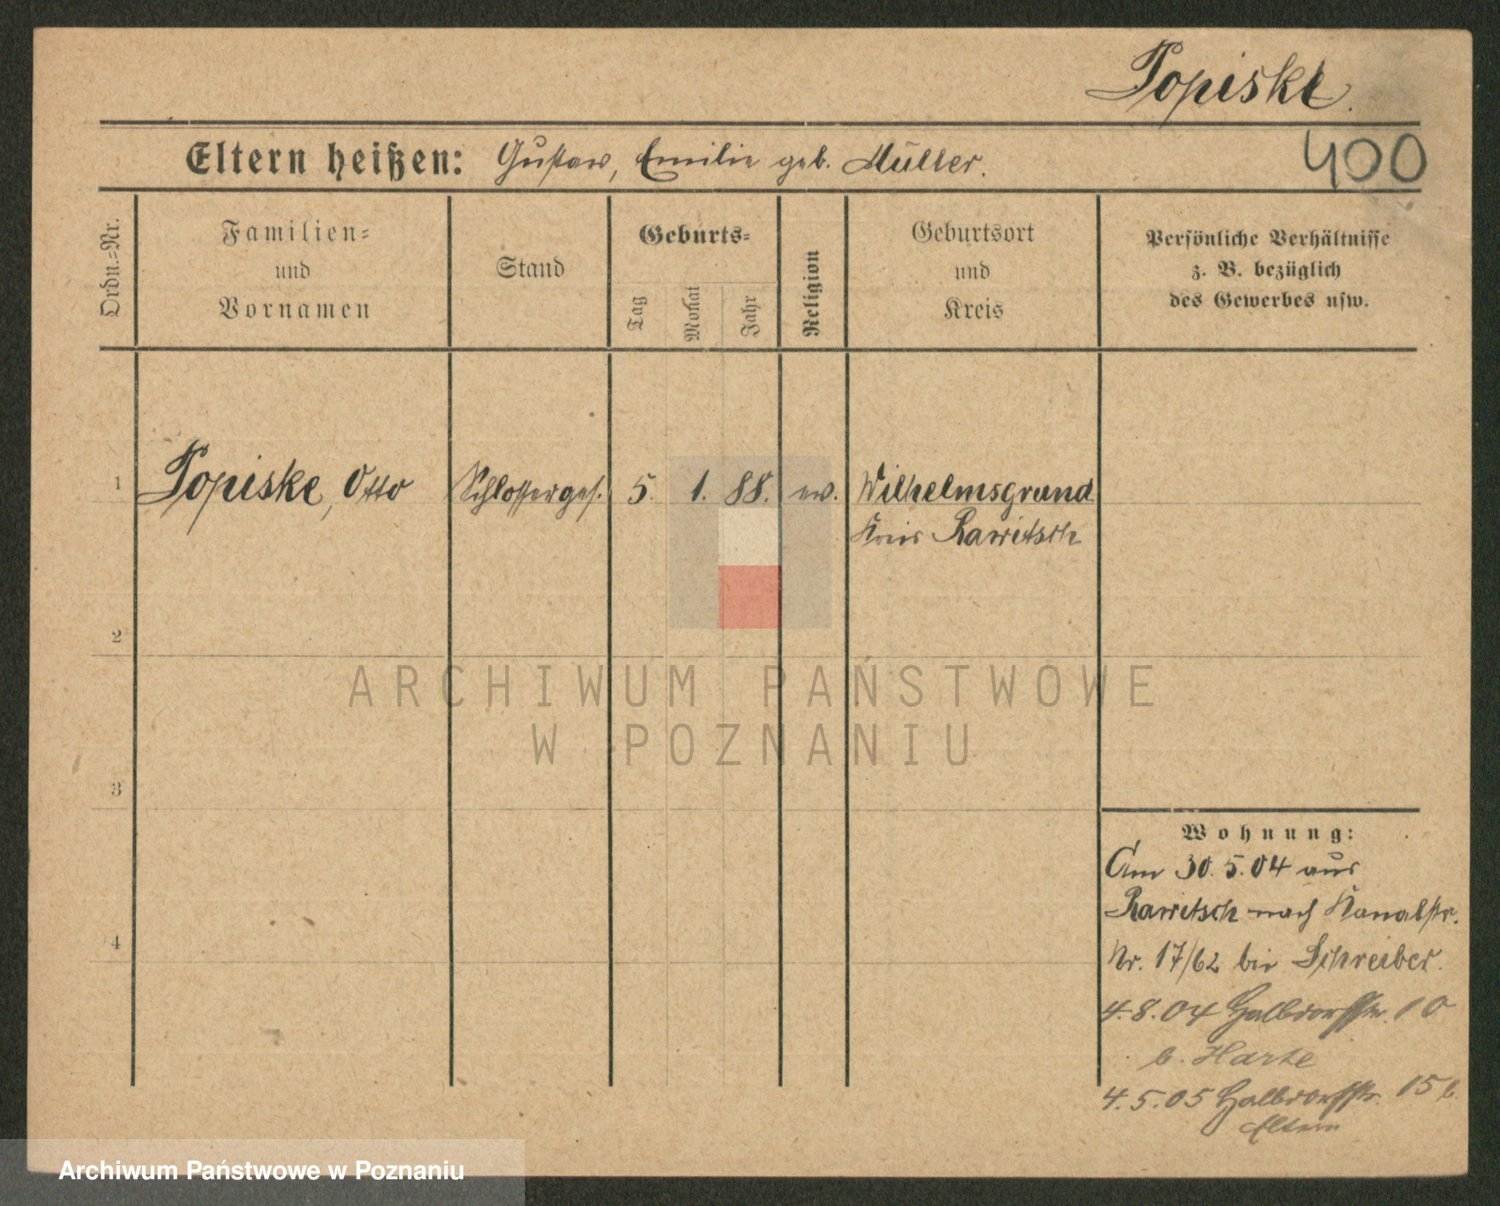 Popiske.
Eltern heißen: Gustav, Emilie geb. Müller.
400
Ordn.=Nr.
Familien=
und
Vornamen
Stand
Geburts=
Tag
Monat
Jahr
Religion
Geburtsort
und
Kreis
Persönliche Verhältnisse
z. B. bezüglich
des Gewerbes usw.
1 Popiske, Otto Schlosserges. 5. 1. 88. ev. Wilhelmsgrund
Kreis Rawitsch
2
ARCHIWUM PAŃSTWOWE
W POZNANIU
3
Wohnung:
Am 30.5.04 aus
Rawitsch nach Kanalstr.
4
Nr. 17/62 bei Schreiber.
4.8.04 Halbdorffstr. 10
b. Harke
4.5.05 Halbdorffstr. 15 b.
Eltern
Archiwum Państwowe w Poznaniu